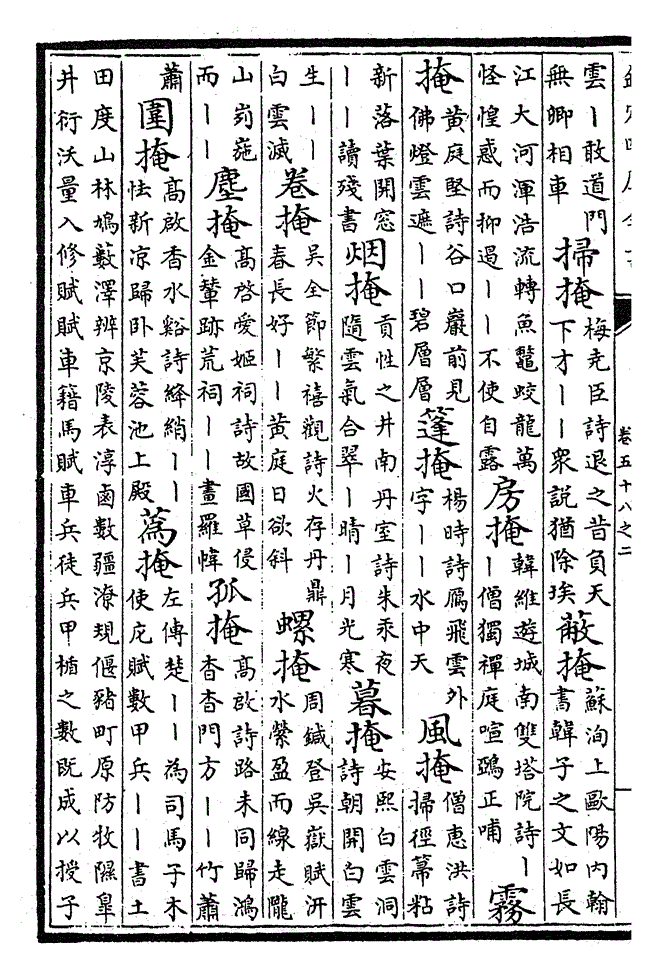 卷五十八之二
雲丨敢道門無卿相車 掃掩 梅尭臣詩退之昔負天下才丨丨衆説猶除埃 蔽掩 蘇洵上歐陽内翰書韓子之文如長
江大河渾浩流轉魚鼈蛟龍萬怪惶惑而抑遏丨丨不使自露 房掩 韓維遊城南雙塔院詩丨丨僧獨禪庭喧鷗正哺 霧
掩 黄庭堅詩谷口巖前見佛燈雲遮丨丨碧層層 篷掩 楊時詩鴈飛雲外字丨丨水中天 風掩 僧惠洪詩掃徑幕粘
新落葉開窓丨丨讀殘書 烟掩 貢性之井南丹室詩朱汞夜隨雲氣合翠丨晴丨月光寒 暮掩 安熙白雲洞詩朝開白雲
生丨丨白雲滅 卷掩 吴全節繁禧觀詩火存丹鼎春長好丨丨黄庭日欲斜 螺掩 周鍼登吴嶽賦汧水縈盈而線走隴
山峛崺而丨丨 塵掩 高啓愛姬祠詩故國草侵金輦跡荒祠丨丨畫羅幃 孤掩 高啟詩路未同歸鴻杳杳門方丨丨竹蕭
蕭 圍掩 高啟香水谿詩絳綃丨丨怯新凉歸卧芙蓉池上殿 蒍掩 左傳楚丨丨為司馬子木使庀賦數甲兵丨丨書土
田度山林鳩藪澤辨京陵表淳鹵數疆潦規偃豬町原防牧隰皐井衍沃量入修賦賦車籍馬賦車兵徒兵甲楯之數既成以授子